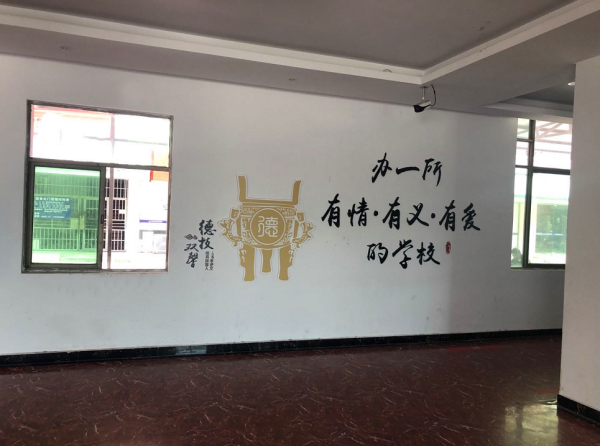 办一所
有情·有义·有爱
的学校
德
德技
双馨